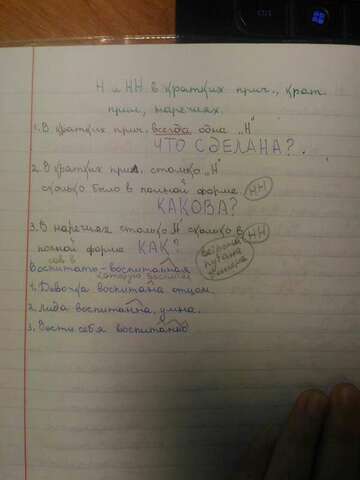 Н и НН в кратких прич., крат.
прил, наречиях.
1. В кратких прич. всегда одна "Н"
ЧТО СДЕЛАНА?.
2. В кратких прил. столько "Н"
сколько было в полной форме НН
КАКОВА?
3. В наречиях столько "Н" сколько в НН
полной форме КАК?
сов. в
Воспитать - воспитанная
1. Девочка воспитана отцом.
2. Лида воспитанна, умна.
3. Вести себя воспитанно